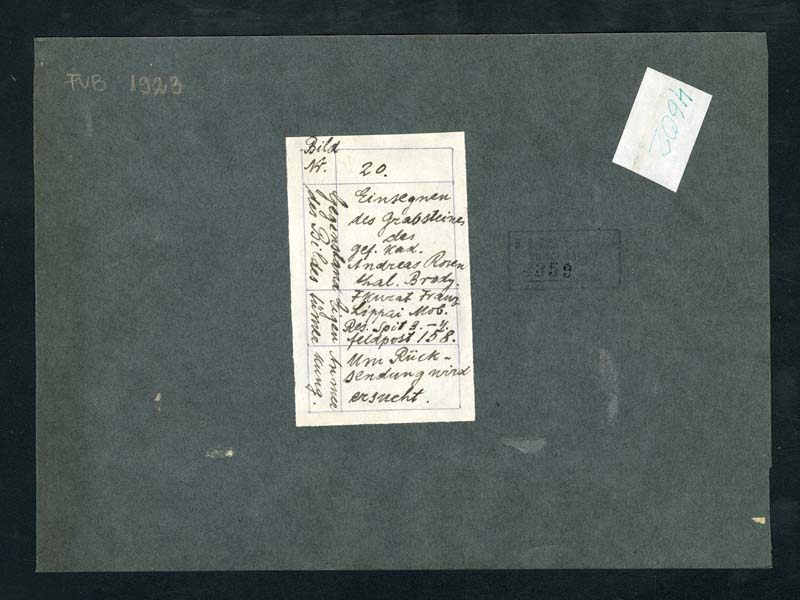 FVB 1923
4602
Bild
Nr.
20.
Gegenstand
des Bildes
Einsegnen
des Grabsteines
des
gef. Kad.
Andreas Rosen
thal. Brody.
Eigen
tümer
Franz
Lippai Mob.
Res. Spit 3.-4.
feldpost 158.
Anmer
kung.
Um Rück-
sendung wird
ersucht.
4959